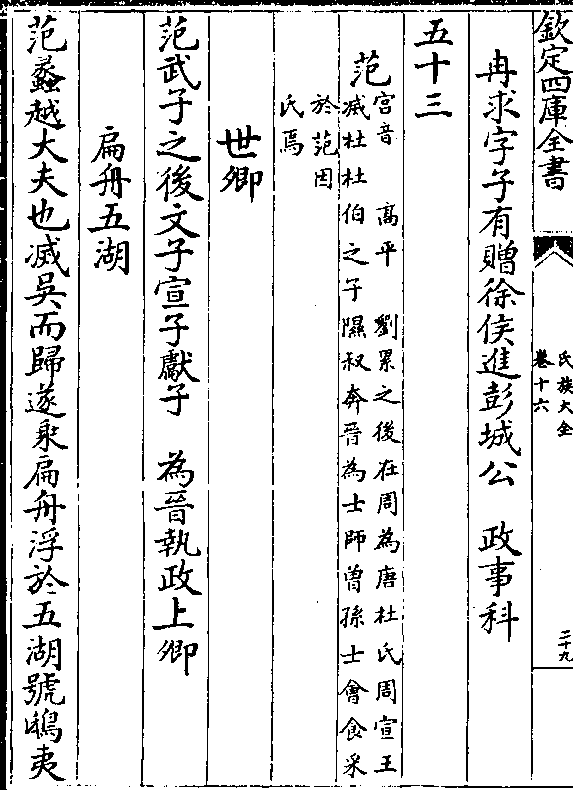 欽定四庫全書
氏族大全
卷十六
二十九
冉求字子有贈徐侯進彭城公　政事科
五十三
范
宫音　高平　劉累之後在周為唐杜氏周宣王
滅杜杜伯之子隰叔奔晉為士師曾孫士會食采
於范因
氏焉
世卿
范武子之後文子宣子獻子　為晉執政上卿
扁舟五湖
范蠡越大夫也滅吳而歸遂乘扁舟浮於五湖號鴟夷